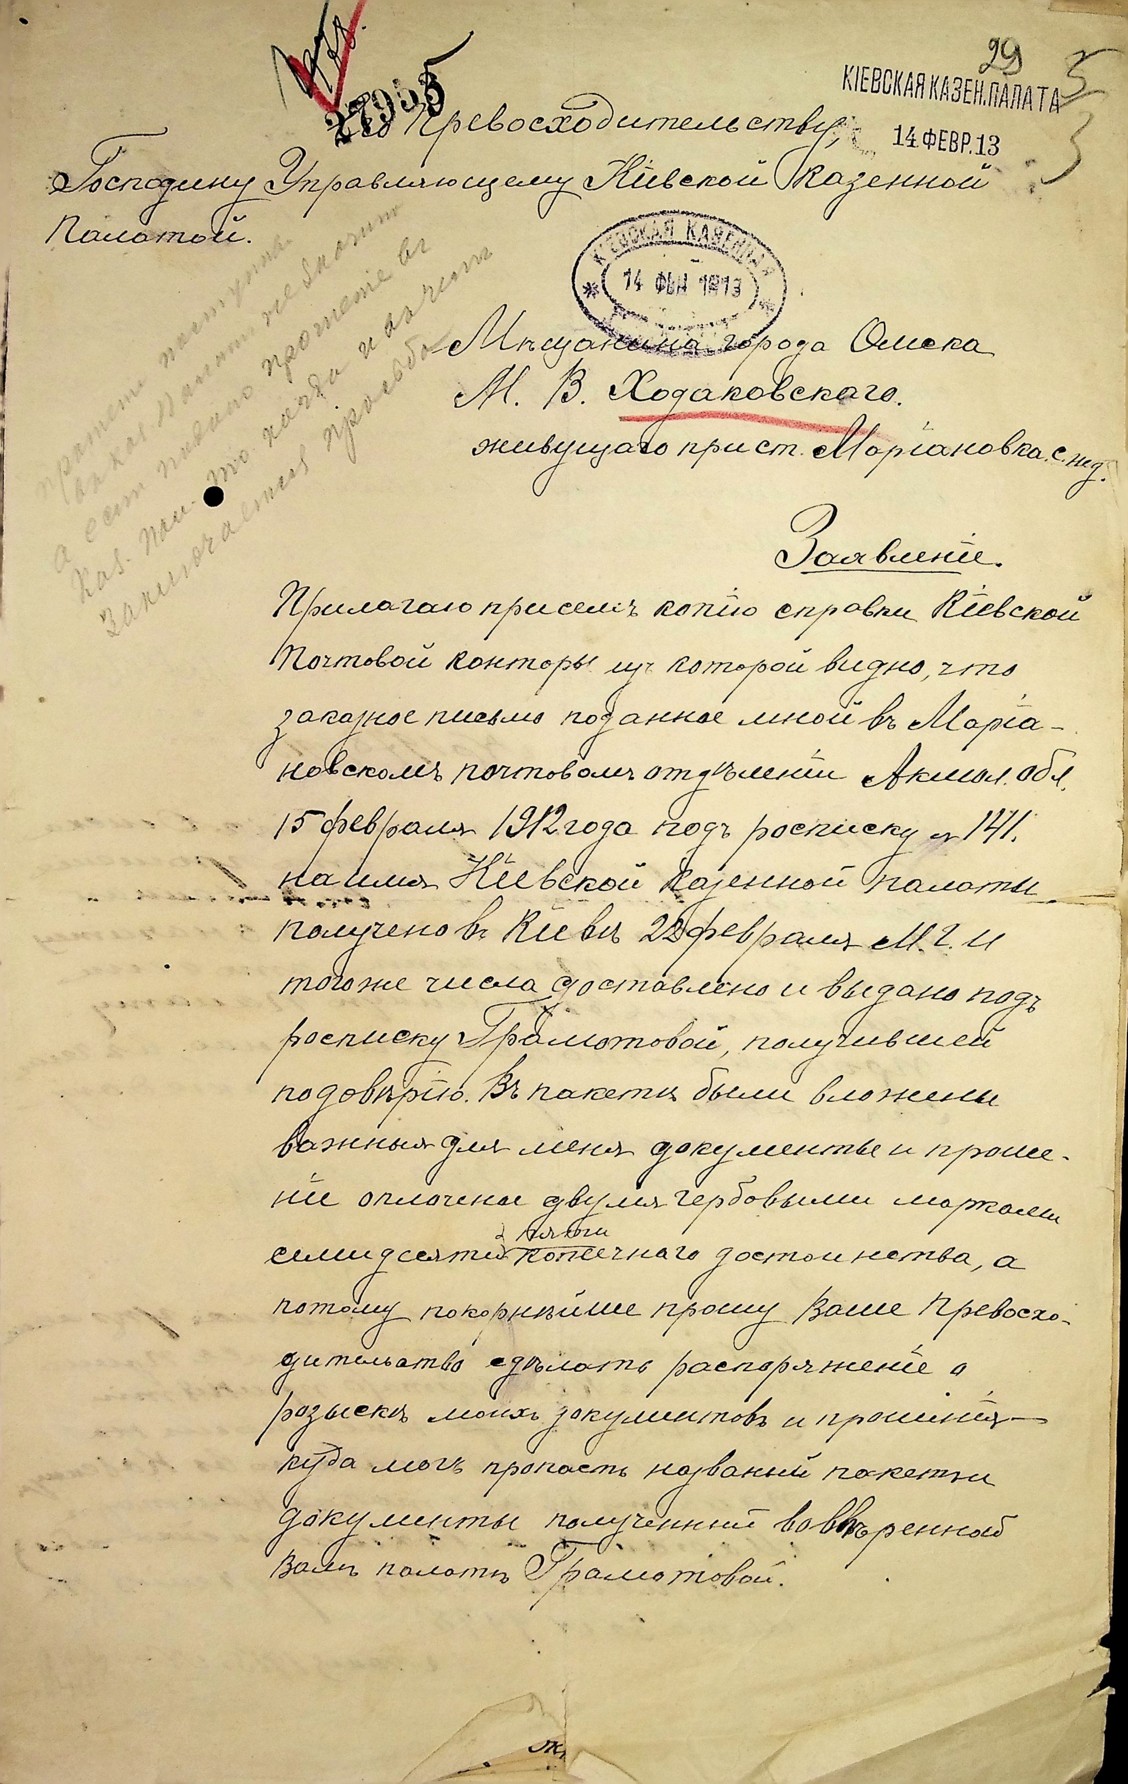 29
КІЕВСКАЯ КАЗЕН.ПАЛАТА
14 ФЕВР.13
27955
Превосходительству,
Господину Управляющему Кіевской Казенной
Палатой.
КІЕВСКАЯ КАЗЕННАЯ
14 1913
Мѣщанина города Омска
М. В. Ходаковскаго.
живущаго при ст. Маріановка. с. жд.
Заявленіе.
Прилагаю при семъ копію справки Кіевской
Почтовой Конторы изъ которой видно, что
заказное письмо поданное мной въ Маріа-
новскомъ почтовомъ отдѣленіи Акмол. обл.
15 февраля 1912 года подъ росписку № 141.
на имя Кіевской Казенной палаты
получено въ Кіевѣ 22 февраля М. г. и
тогоже числа доставлено и выдано подъ
росписку Грамотовой, получившей
подовѣрію. Въ пакетѣ были вложены
важныя для меня документы и проше-
ніе оплочена двумя гербовыми марками
семидсяти пяти копеечнаго достоинства, а
потому покорнѣйше прошу Ваше Превосхо-
дительство сдѣлать распоряженіе о
розыскѣ моихъ документовъ и прошенія
куда могъ пропасть названый пакетъ и
документы полученный во ввѣренной
Вамъ палатѣ Грамотовой.